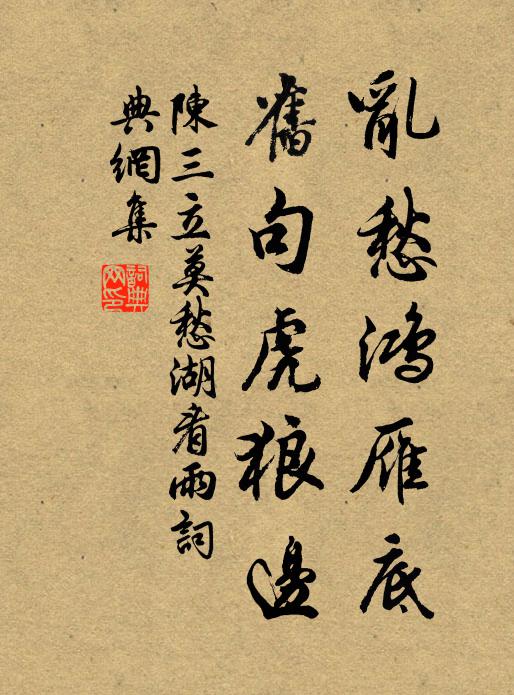 亂愁鴻雁底
舊句虎狼邊
陳三立莫愁湖看雨詞
典網集
詞典网印